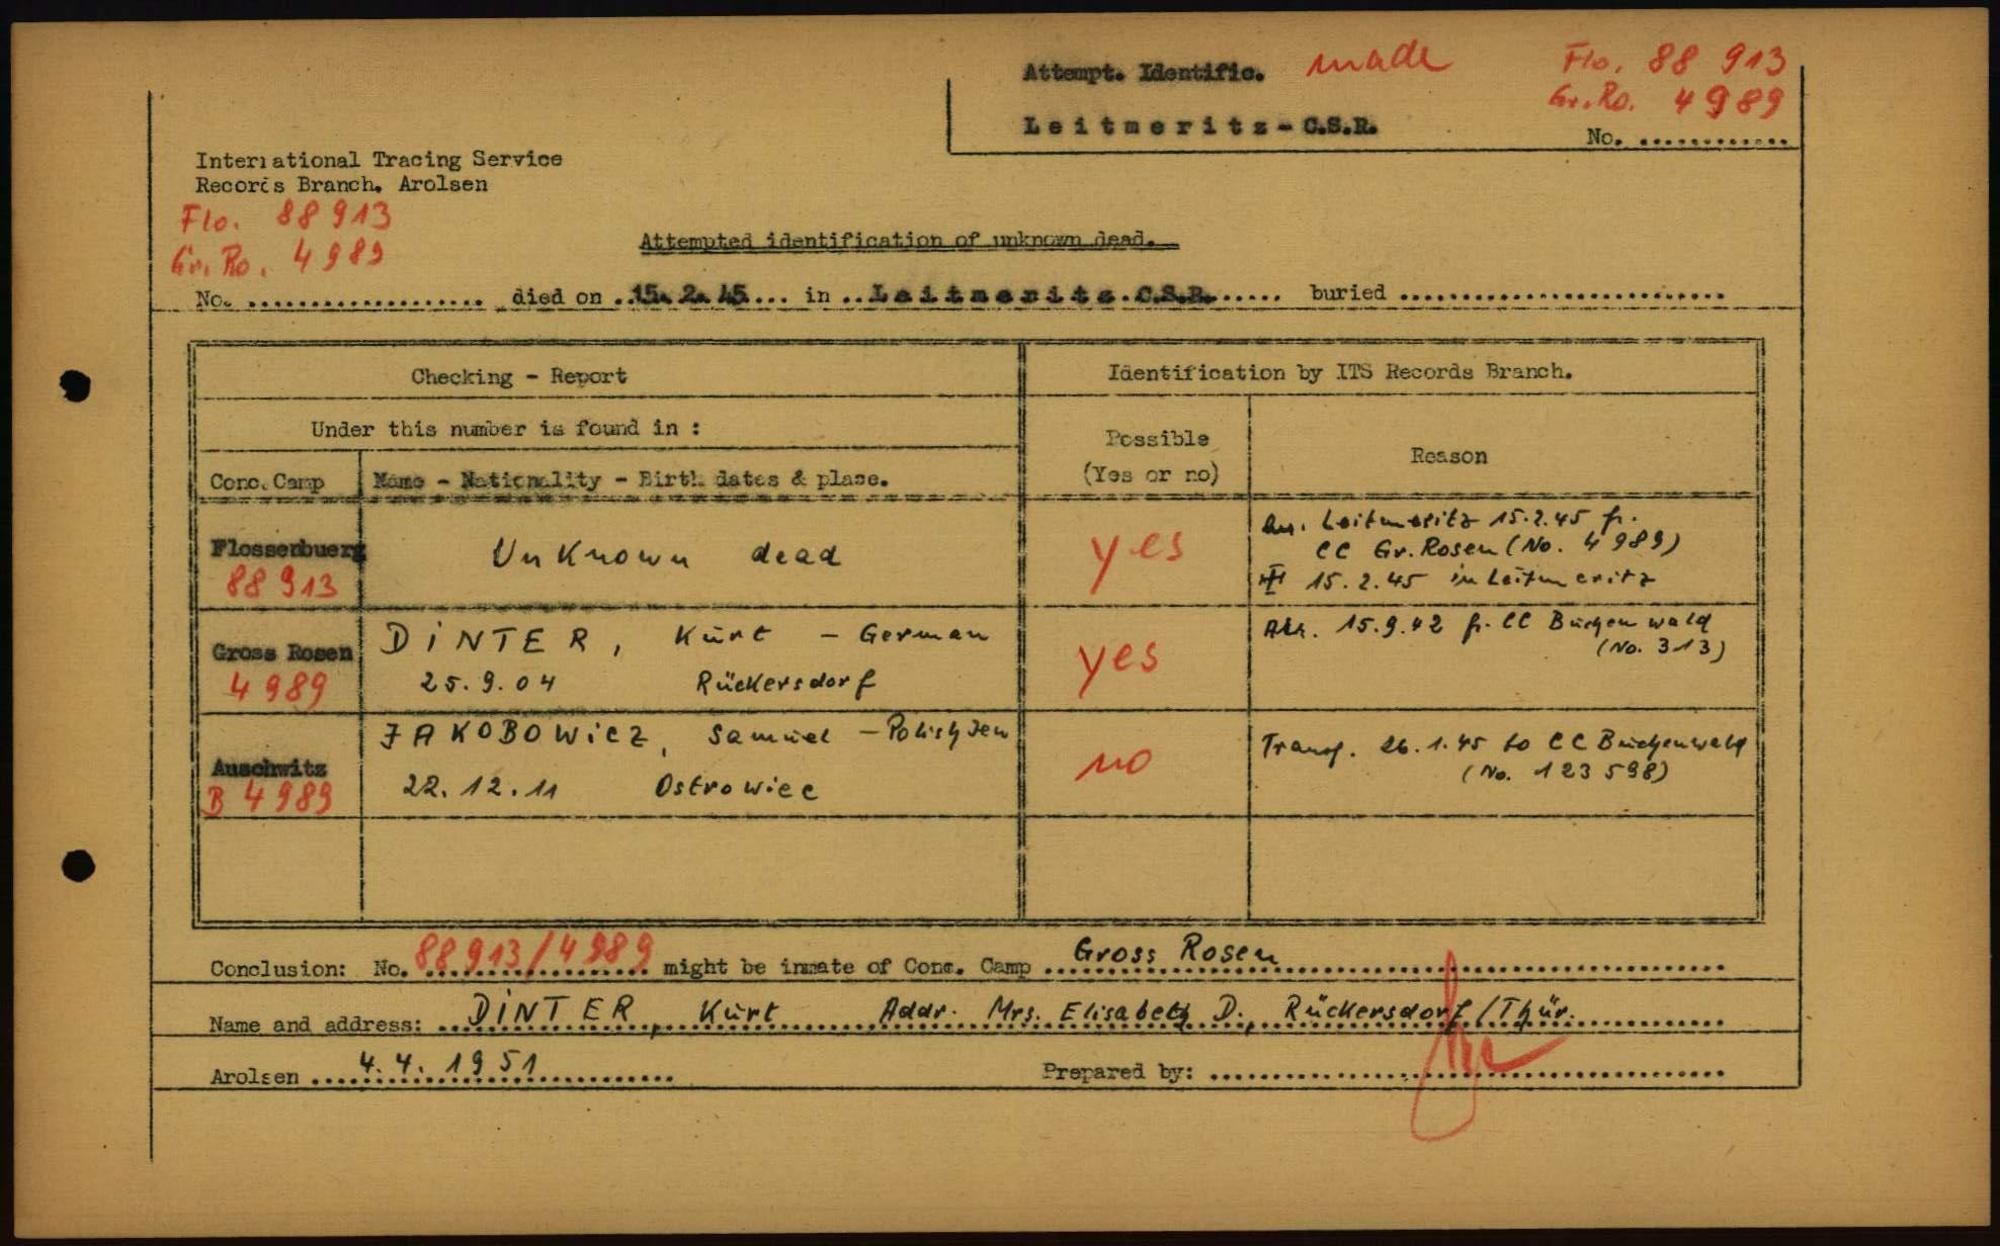 Attempt. Identific. made Flo. 88 913
Gr.Ro. 4989
Leitmeritz-C.S.R.
No. ............
International Tracing Service
Records Branch, Arolsen
Flo. 88913
Gr. Ro. 4989
Attempted identification of unknown dead.
No. .................... died on ..15. 2. 45.... in ..Leitmeritz.C.S.R....... buried ............................
Checking - Report Identification by ITS Records Branch.
Under this number is found in :
Possible
(Yes or no)
Reason
Conc. Camp Name - Nationality - Birth dates & place.
Flossenbuerg
88 913
Unknown dead
yes
Leitmeritz 15.2.45 fr.
CC Gr. Rosen (No. 4989)
15.2.45 in Leitmeritz
Gross Rosen
4989
DINTER, Kurt - German
25.9.04 Rückersdorf
yes
15.9.42 fr. CC Buchenwald
(No. 313)
Auschwitz
B 4989
JAKOBOWICZ, Samuel - Polish Jew
22.12.11 Ostrowiec
no
Transf. 26.1.45 to CC Buchenwald
(No. 123598)
Conclusion: No. 88913/4989 might be inmate of Conc. Camp Gross Rosen
Name and address: DINTER, Kurt Addr. Mrs. Elisabeth D., Rückersdorf/Thür.
Arolsen 4.4.1951 Prepared by: